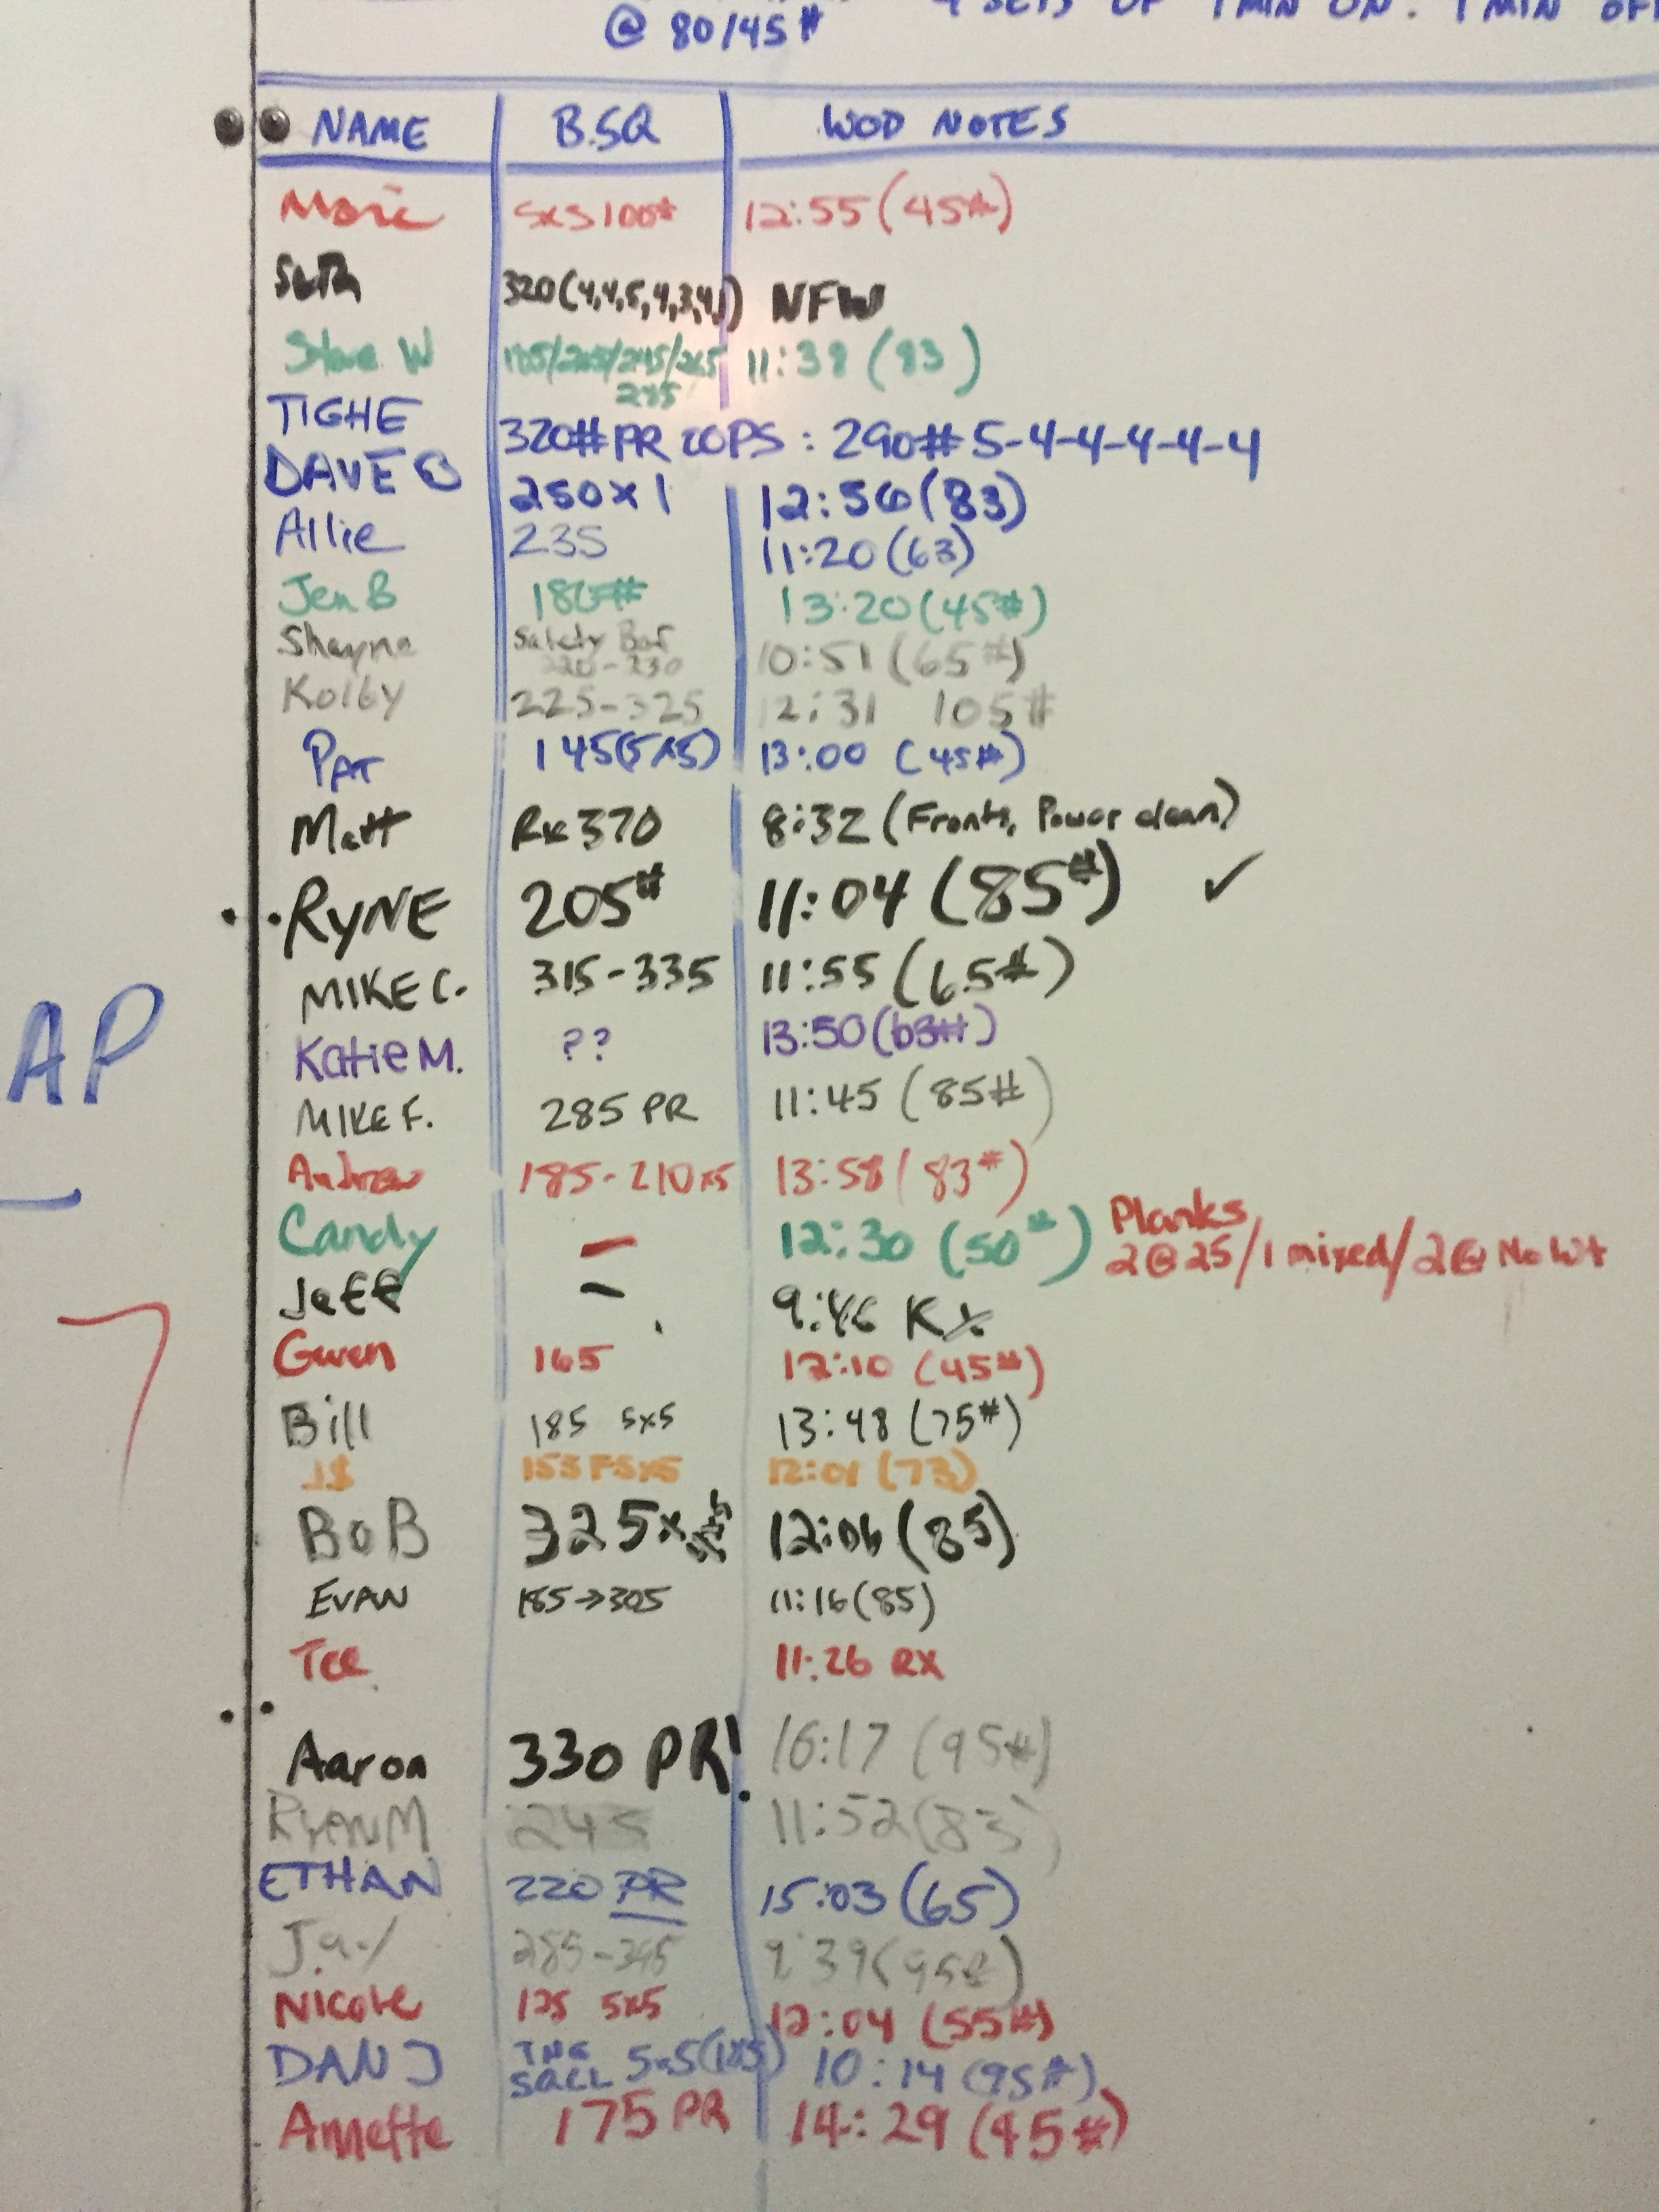 4 SETS OF 1 MIN ON. 1 MIN OFF
@ 80/45#
NAME B.SQ WOD NOTES
5x5 100# 12:55 (45#)
Seth 320 (4,4,5,4,3,4,) NFW
Steve W 185/205/245/265 11:38 (83)
285
TIGHE 320# PR 20PS : 290# 5-4-4-4-4-4
DAVE B 250 x 1 12:56 (83)
Allie 235 11:20 (63)
Jen B 180# 13:20 (45#)
Shayna Safety Bar 10:51 (65#)
220-230
Kolby 225-325 12:31 105#
PAT 145 (5x5) 13:00 (45#)
Matt Rx 370 8:32 (Fronts, Power clean)
RYNE 205# 11:04 (85#) ✓
MIKE C. 315-335 11:55 (65#)
Katie M. ?? 13:50 (63#)
MIKE F. 285 PR 11:45 (85#)
Andrew 185-210x5 13:58 (83#)
Candy — 12:30 (50#) Planks
2@25/1 mixed/2@ No Wt
Jeff — 9:46 Rx
Gwen 165 12:10 (45#)
Bill 185 5x5 13:48 (75#)
J$ 155 FS x5 12:01 (73)
BoB 325x 12:06 (85)
EVAN 185→305 11:16 (85)
Tee 11:26 RX
Aaron 330 PR! 16:17 (95#)
Ryan M 245 11:52 (83)
ETHAN 220 PR 15:03 (65)
Jay 285-345 9:39 (95#)
Nicole 125 5x5 12:04 (55#)
DAN J 5x5 (185) 10:14 (95#)
Annette 175 PR 14:29 (45#)
AP
7